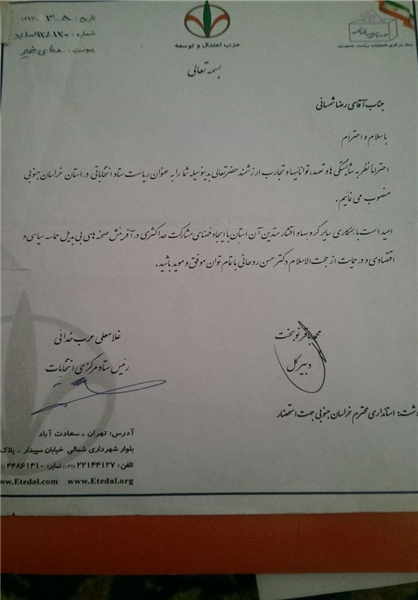 تاریخ : ۱۳۹۲/۳/۰۸
شماره :
پیوست :
حزب اعتدال و توسعه
ستاد مرکزی انتخابات ریاست جمهوری
بسمه تعالی
جناب آقای رضا شهسانی
با سلام و احترام
احتراما نظر به شایستگی ها و تعهد، توانائیها و تجارب ارزشمند حضرتعالی بدینوسیله شما را به عنوان ریاست ستاد انتخاباتی در استان خراسان جنوبی
منصوب می نمائیم.
امید است با همکاری سایر گروهها و اقشار متدین آن استان با ایجاد فضای مشارکت حداکثری در آفرینش صحنه های بی بدیل حماسه سیاسی و
اقتصادی و در حمایت از حجت الاسلام دکتر حسن روحانی با تمام توان موفق و موید باشید.
محمد باقر نوبخت
دبیر کل
غلامعلی عرب خدائی
رئیس ستاد مرکزی انتخابات
رونوشت: استانداری محترم خراسان جنوبی جهت استحضار
آدرس: تهران - سعادت آباد
بلوار شهرداری شمالی خیابان سپیدار - پلاک
تلفن : ۲۲۱۴۴۱۲۷ (۰۲۱) نمابر: ۴۴۸۶۱۴۱۰
www.Etedal.com www.Etedal.org